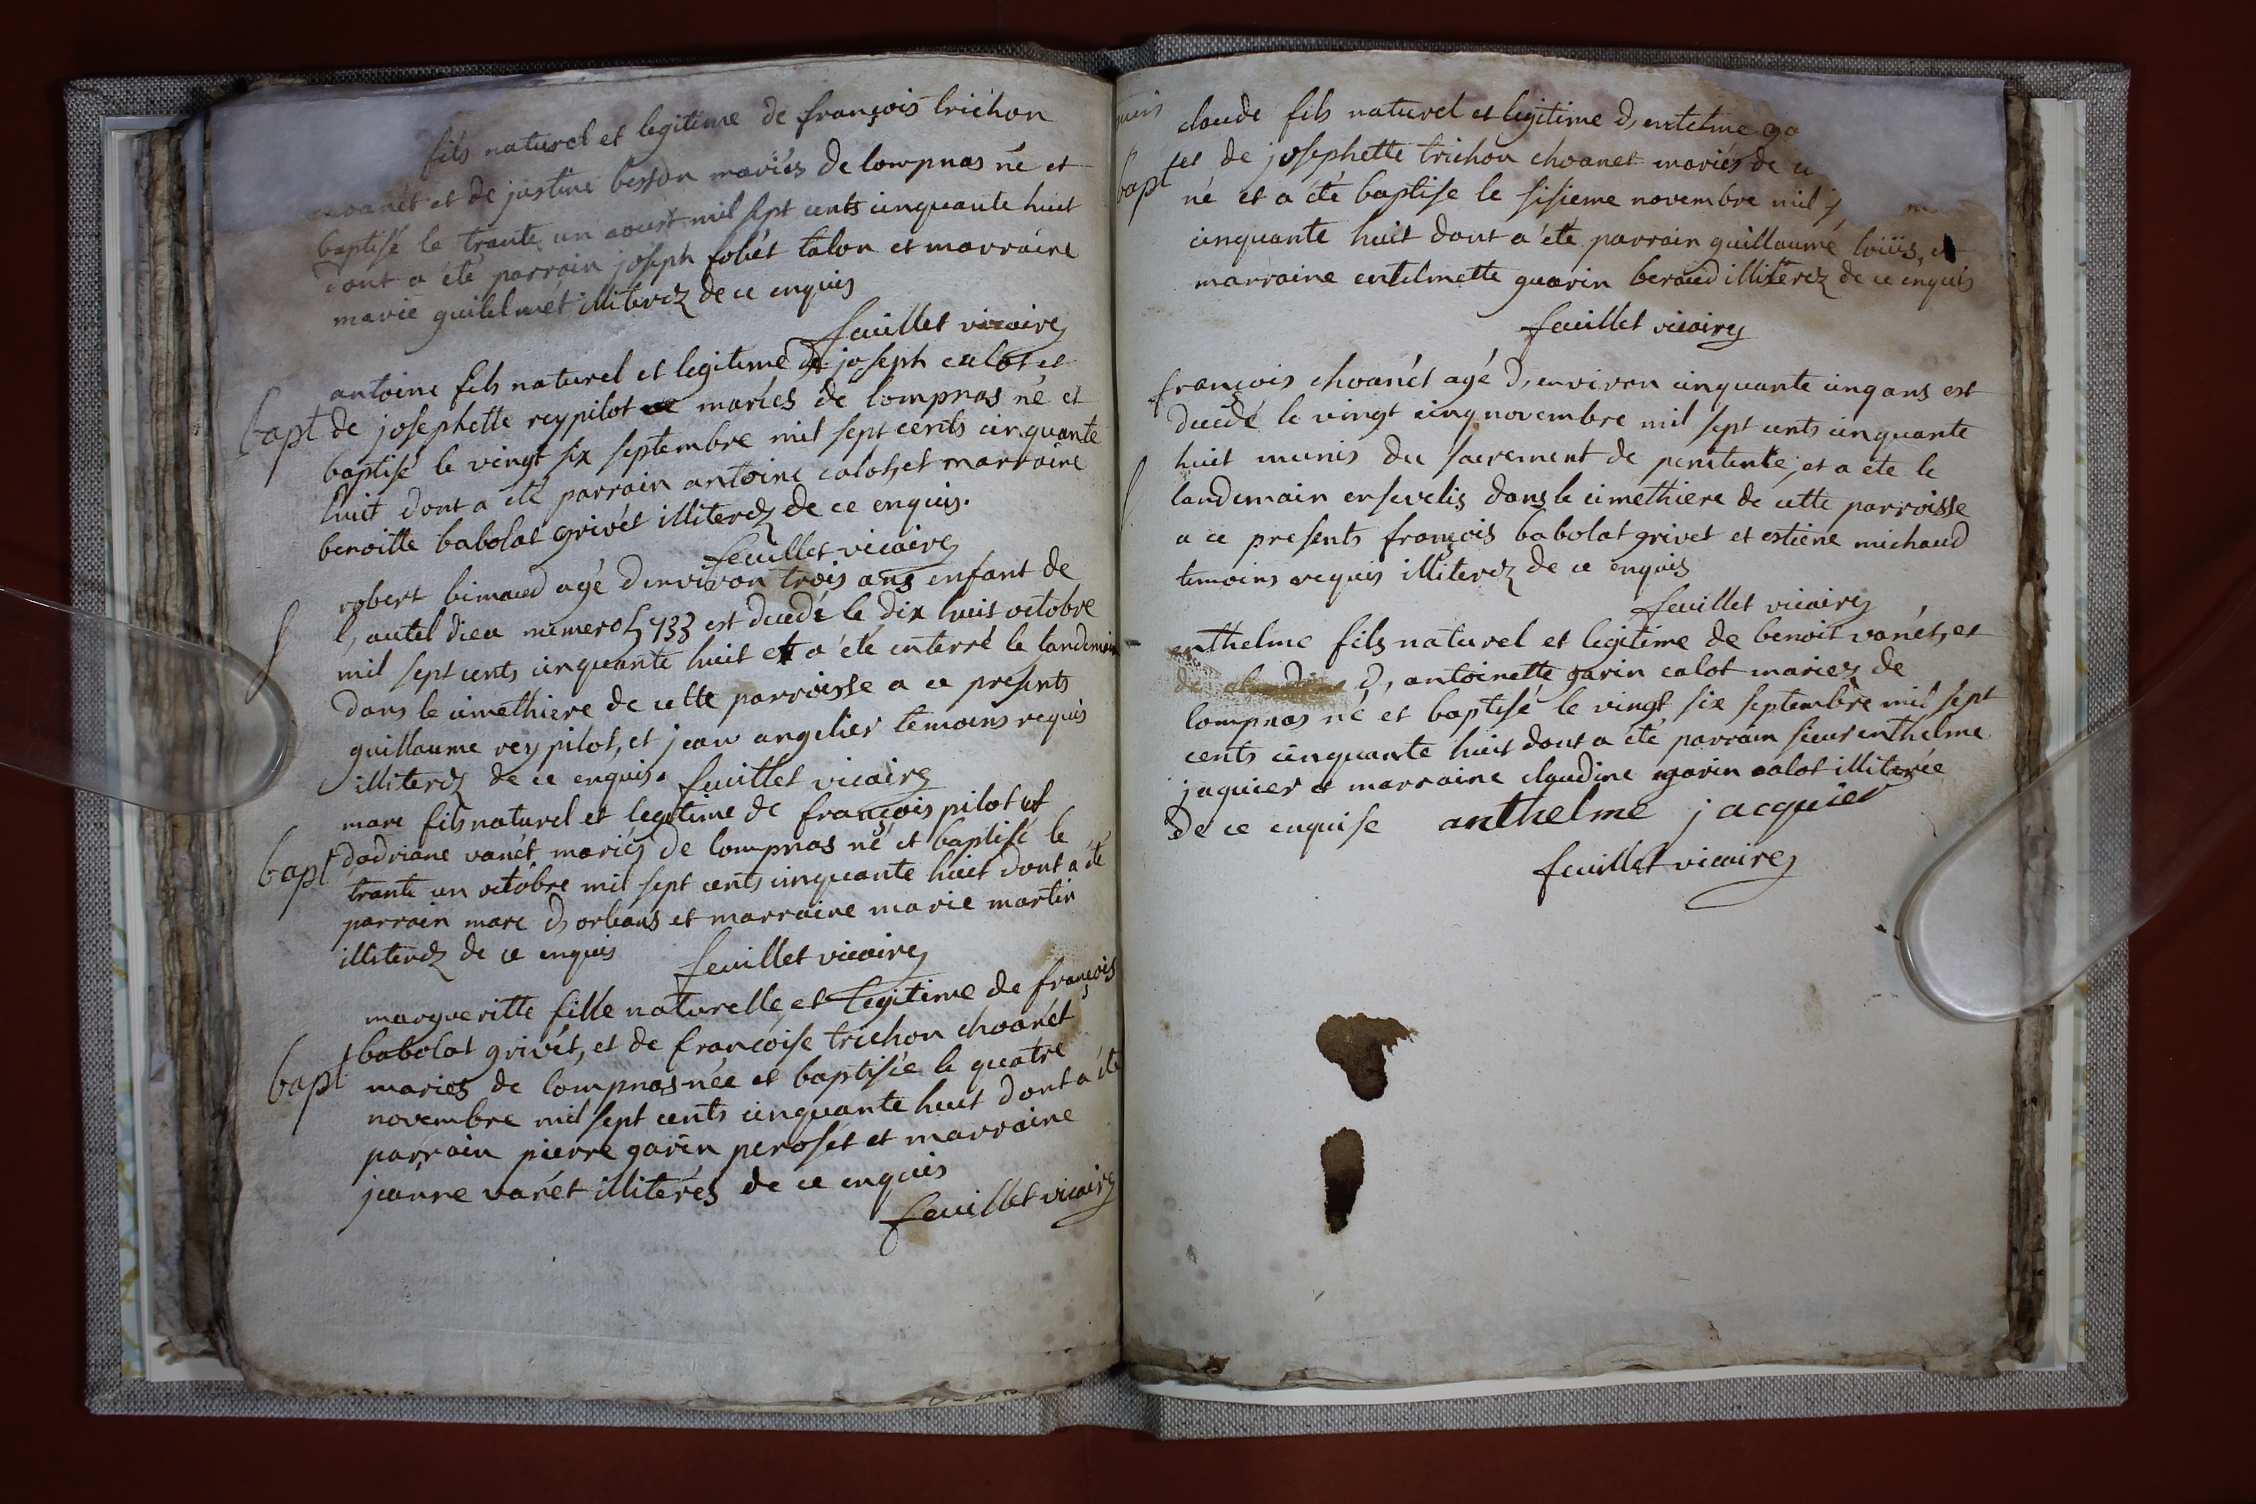 fils naturel et legitime de françois trichon
choanét et de justine besson mariés de lompnas né et
baptisé le trante un aoust mil sept cents cinquante huit
dont a été parrain joseph fobét talon et marraine
marie guilelmet illiterez de ce enquis
feuillet vicaire
antoine fils naturel et legitime de joseph calot et
bapt de josephette reypilot mariés de lompnas né et
baptisé le vingt six septembre mil sept cents cinquante
huit dont a été parrain antoine calot et marraine
benoitte babolat grivét illiterez de ce enquis.
feuillet vicaire
robert bimaud agé d'environ trois ans enfant de
l'autel dieu numero 5733 est decedé le dix huit octobre
mil sept cents cinquante huit et a été enterré le landemain
dans le cimethiere de cette parroisse a ce presents
guillaume reypilot, et jean angelier temoins requis
illiterez de ce enquis. feuillet vicaire
marc fils naturel et legitime de françois pilot et
bapt dadriane vanét mariés de lompnas né et baptisé le
trante un octobre mil sept cents cinquante huit dont a été
parrain marc d'orleans et marraine marie martin
illiterez de ce enquis feuillet vicaire
margueritte fille naturelle, et legitime de françois
bapt babolat grivét, et de françoise trichon choanét
mariés de lompnas née et baptisée le quatre
novembre mil sept cents cinquante huit dont a été
parrain pierre garin peroset et marraine
jeanne vanét illiterés de ce enquis
feuillet vicaire
claude fils naturel et legitime d'entelme ga
bapt et de josephette trichon choanet mariés de
né et a été baptise le sisieme novembre mil
cinquante huit dont a été parrain guillaume loüis, et
marraine entelmette guarin beraud illiterez de ce enquis
feuillet vicaire
françois choanét agé d'environ cinquante cinq ans est
decidé le vingt cinq novembre mil sept cents cinquante
huit munis du sacrement de penitente, et a ete le
landemain ensevelis dans le cimethiere de cette parroisse
a ce presents françois babolat grivet et estiene michaud
temoins requis illiterez de ce enquis
feuillet vicaire
enthelme fils naturel et legitime de benoit vanét, et
d'antoinette garin calot mariez de
lompnas né et baptisé le vingt six septembre mil sept
cents cinquante huit dont a été parrain sieur enthelme
jaquier et marraine claudine garin calot illiterée
de ce enquise anthelme jacquier
feuillet vicaire